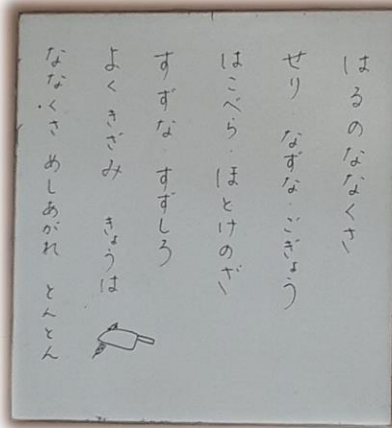 はるのななくさ
せり・なずな・ごぎょう
はこべら・ほとけのざ
すずな すずしろ
よくきざみ きょうは
ななくさ めしあがれ とんとん